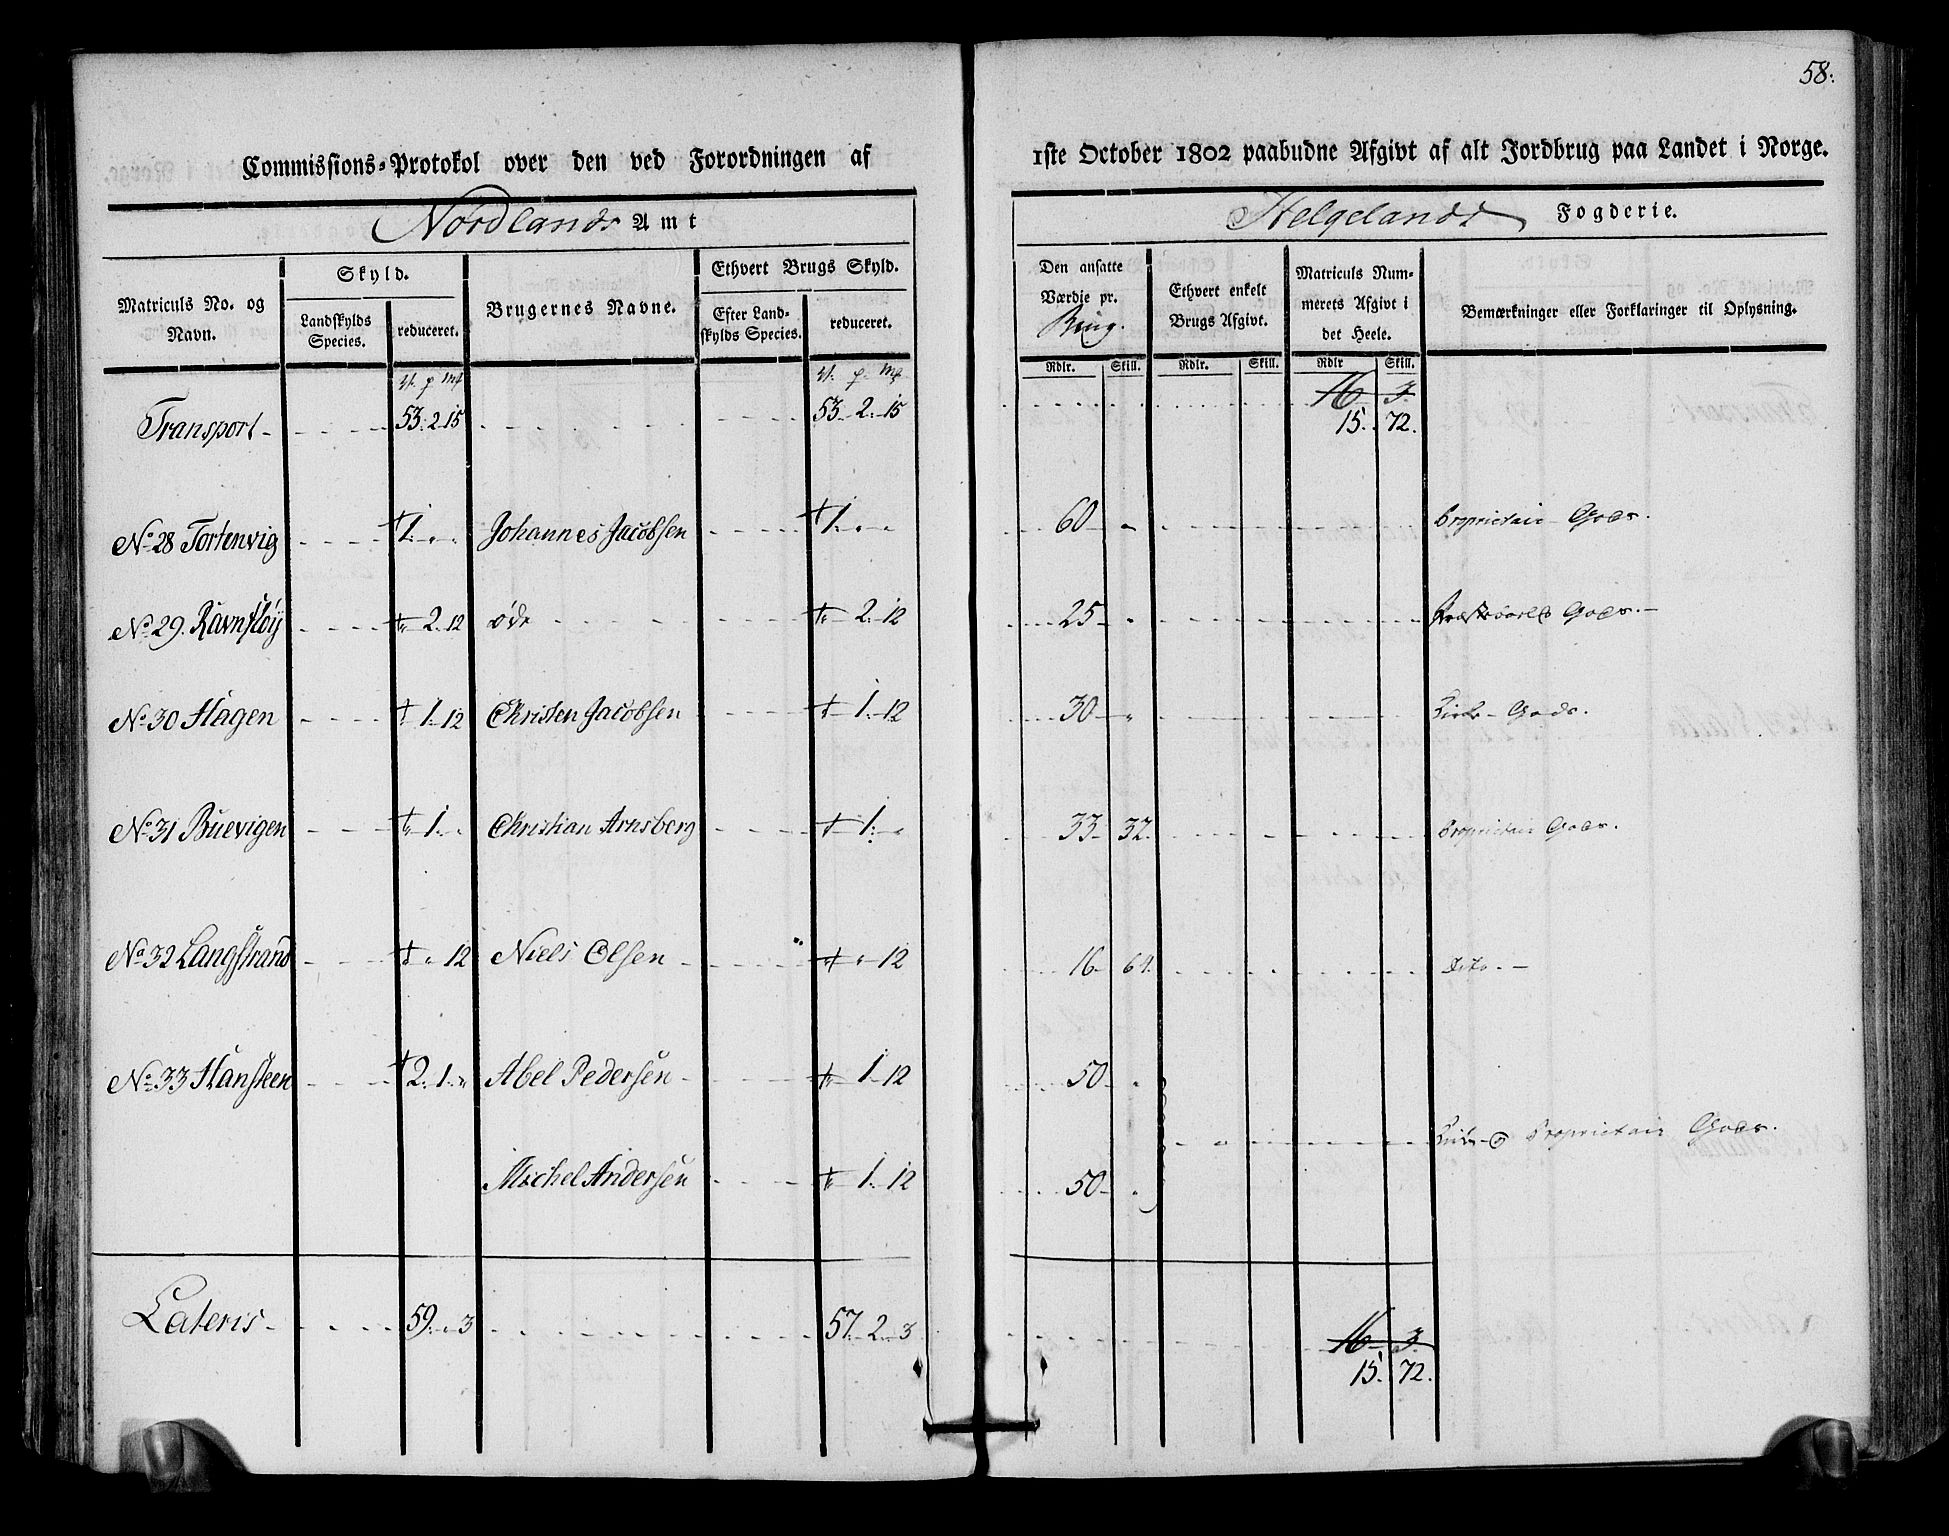 58.
Commissions-Protokol over den ved Forordningen af 1ste October 1802 paabudne Afgivt af alt Jordbrug paa Landet i Norge.
Nordlands Amt Helgelands Fogderie.
Matriculs No. og Navn. Skyld. Landskylds Species. reduceret. Brugernes Navne. Ethvert Brugs Skyld. Efter Landskylds Species. reduceret. Den ansatte Værdie pr. Brug. Ethvert enkelt Brugs Afgivt. Matriculs Nummerets Afgivt i det Heele. Bemærkninger eller Forklaringer til Oplysning.
Rdlr. Skill. Rdlr. Skill. Rdlr Skill.
16 3
Transport 53. 2. 15 53. 2. 15 15. 72.
No 28 Tortenvig 1. Johannes Jacobsen 1. 60 Proprietair Gods.
No 29. Ravnsløij 2. 12 øde 2. 12 25 Gods.
No 30 Hagen 1. 12 Christen Jacobsen 1. 12 30 Gods.
No 31 Buevigen 1. Christian Arnsberg 1. 33 32. Proprietair Gods.
No 32 Langstrand 12 Niels Olsen 12 16 64. Dito
No 33 Hansteen 2. 1. Abel Pedersen 1. 12 50
Proprietair Gods.
Michel Andersen 1. 12 50
16 3.
Lateris 59. 3 57. 2. 3 15. 72.